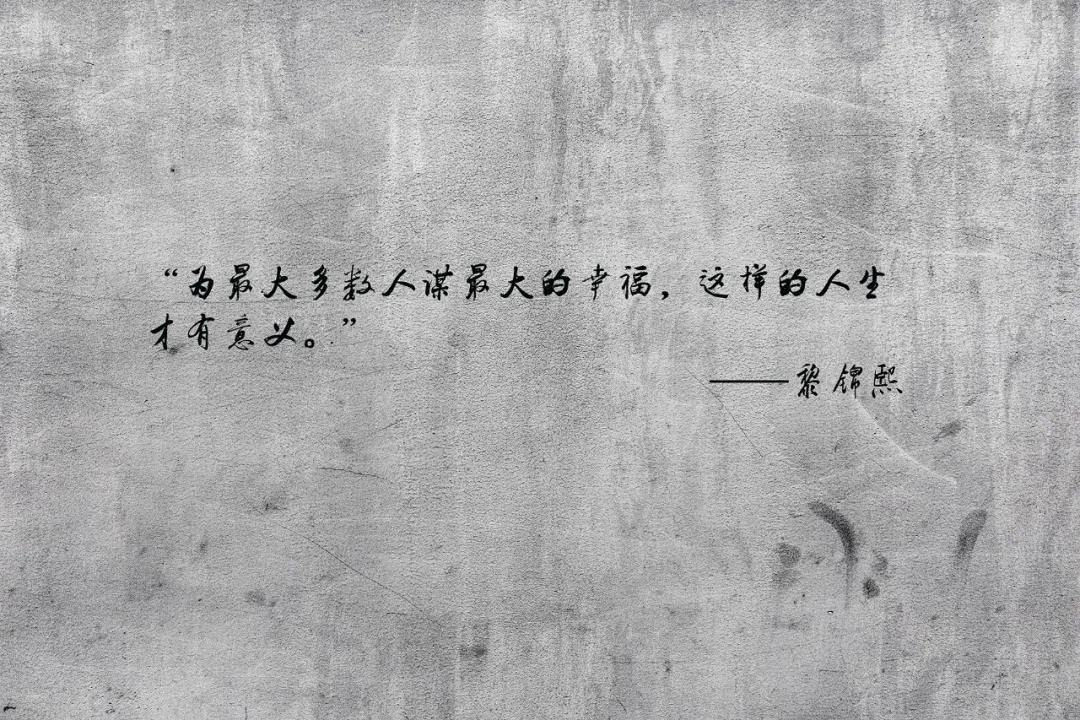 “为最大多数人谋最大的幸福，这样的人生
才有意义。”
——黎锦熙